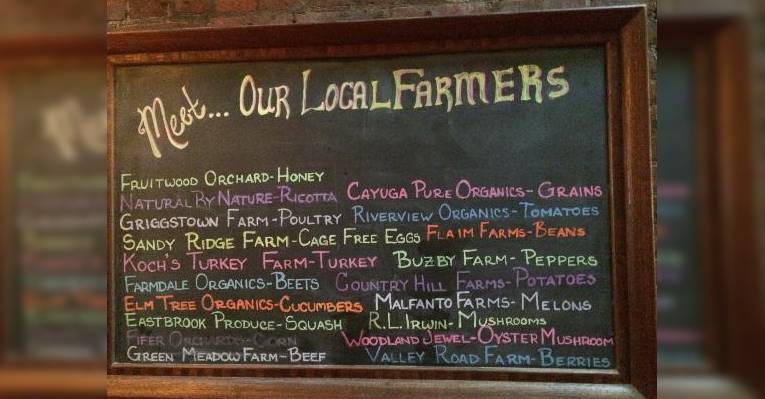 Meet... Our Local Farmers
Fruitwood Orchard-Honey
Natural By Nature-Ricotta
Griggstown Farm-Poultry
Sandy Ridge Farm-Cage Free Eggs
Koch's Turkey Farm-Turkey
Farmdale Organics-Beets
Elm Tree Organics-Cucumbers
Eastbrook Produce-Squash
Fifer Orchards-Corn
Green Meadow Farm-Beef
Cayuga Pure Organics-Grains
Riverview Organics-Tomatoes
Flaim Farms-Beans
Buzby Farm-Peppers
Country Hill Farms-Potatoes
Malfanto Farms-Melons
R.L. Irwin-Mushrooms
Woodland Jewel-Oyster Mushroom
Valley Road Farm-Berries